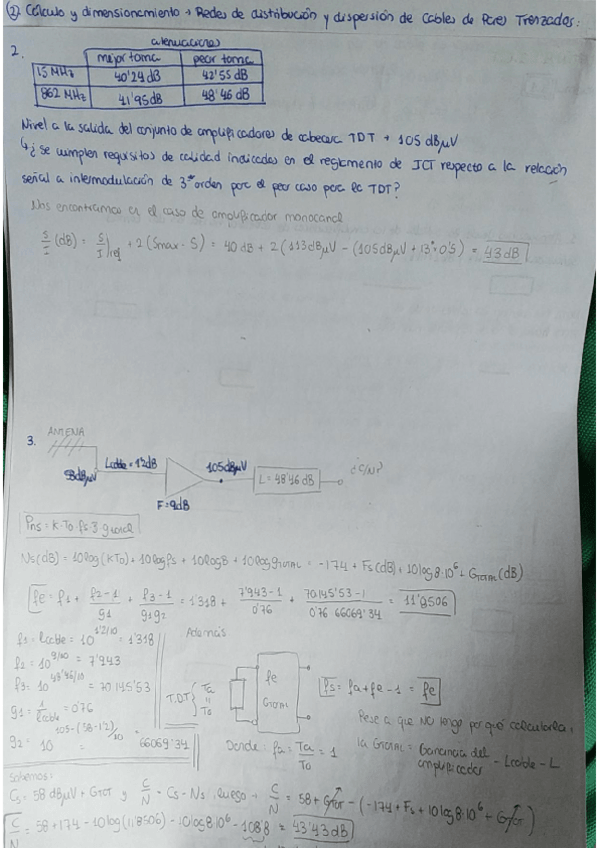 ② Cálculo y dimensionamiento → Redes de distribución y dispersión de Cables de Pares Trenzados:
2.
atenuaciones
mejor toma | peor toma
15 MHz | 40'24 dB | 42'55 dB
862 MHz | 41'95 dB | 48'46 dB
Nivel a la salida del conjunto de amplificadores de cabecera TDT → 105 dBμV
↳ ¿se cumplen requisitos de calidad indicados en el reglamento de ICT respecto a la relación
señal a intermodulación de 3er orden para el peor caso para la TDT?
Nos encontramos en el caso de amplificador monocanal
S/I (dB) = S/I)ref + 2(Smax - S) = 40 dB + 2(113dBμV - (105dBμV + 13·0'5) = 43 dB
3.
ANTENA
58dBμV
Lcable = 1'2dB
F = 9dB
105dBμV
L = 48'46 dB
¿C/N?
Pns = K·To·fs·B·gtotal
Ns(dB) = 10log(KTo) + 10logfs + 10logB + 10log gTOTAL = -174 + Fs(dB) + 10log 8·10⁶ + GTOTAL (dB)
fe = f1 + (f2-1)/g1 + (f3-1)/(g1g2) = 1'318 + (7'943-1)/0'76 + (70.145'53-1)/(0'76·66069'34) = 11'8506
f1 = lcable = 10^(1'2/10) = 1'318
f2 = 10^(9/10) = 7'943
f3 = 10^(48'46/10) = 70.145'53
g1 = 1/lcable = 0'76
g2 = 10^((105-(58-1'2))/10) = 66069'34
Además
T.D.T { Ta = To
fe
GTOTAL
fs = fa + fe - 1 = fe
Donde: fa = Ta/To = 1
Pese a que NO tengo por qué calcularla:
la GTOTAL = Ganancia del amplificador - Lcable - L
Sabemos:
Cs = 58 dBμV + GTOT y C/N = Cs - Ns, luego → C/N = 58 + GTOT - (-174 + Fs + 10log 8·10⁶ + GTOT)
C/N = 58 + 174 - 10log(11'8506) - 10log 8·10⁶ - 108'8 = 43'43 dB